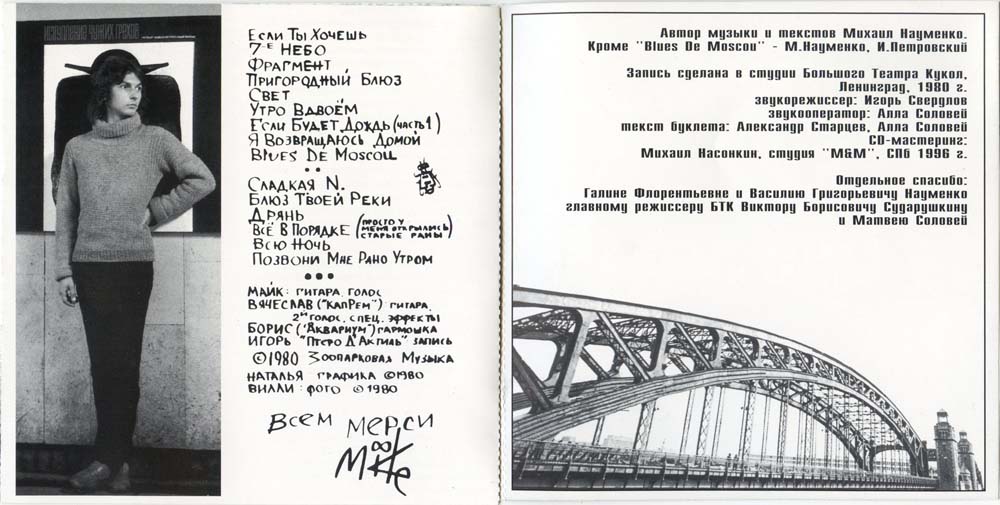 Если Ты Хочешь
7-е Небо
Фрагмент
Пригородный Блюз
Свет
Утро Вдвоём
Если Будет Дождь (часть 1)
Я Возвращаюсь Домой
Blues De Moscou
• •
Сладкая N.
Блюз Твоей Реки
Дрянь
Всё в Порядке (просто у меня открылись старые раны)
Всю Ночь
Позвони Мне Рано Утром
• • •
Майк: гитара, голос
Вячеслав ("КапРем"): гитара,
2й голос, спец. эффекты
Борис ("Аквариум") гармошка
Игорь "Птеро Д'Актиль" запись
©1980 Зоопарковая Музыка
Наталья графика ©1980
Вилли: фото ©1980
Всем мерси
Автор музыки и текстов Михаил Науменко.
Кроме "Blues De Moscou" - М.Науменко, И.Петровский
Запись сделана в студии Большого Театра Кукол,
Ленинград, 1980 г.
звукорежиссер: Игорь Свердлов
звукооператор: Алла Соловей
текст буклета: Александр Старцев, Алла Соловей
CD-мастеринг:
Михаил Насонкин, студия "М&М", СПб 1996 г.
Отдельное спасибо:
Галине Флорентьевне и Василию Григорьевичу Науменко
главному режиссеру БТК Виктору Борисовичу Сударушкину
и Матвею Соловей